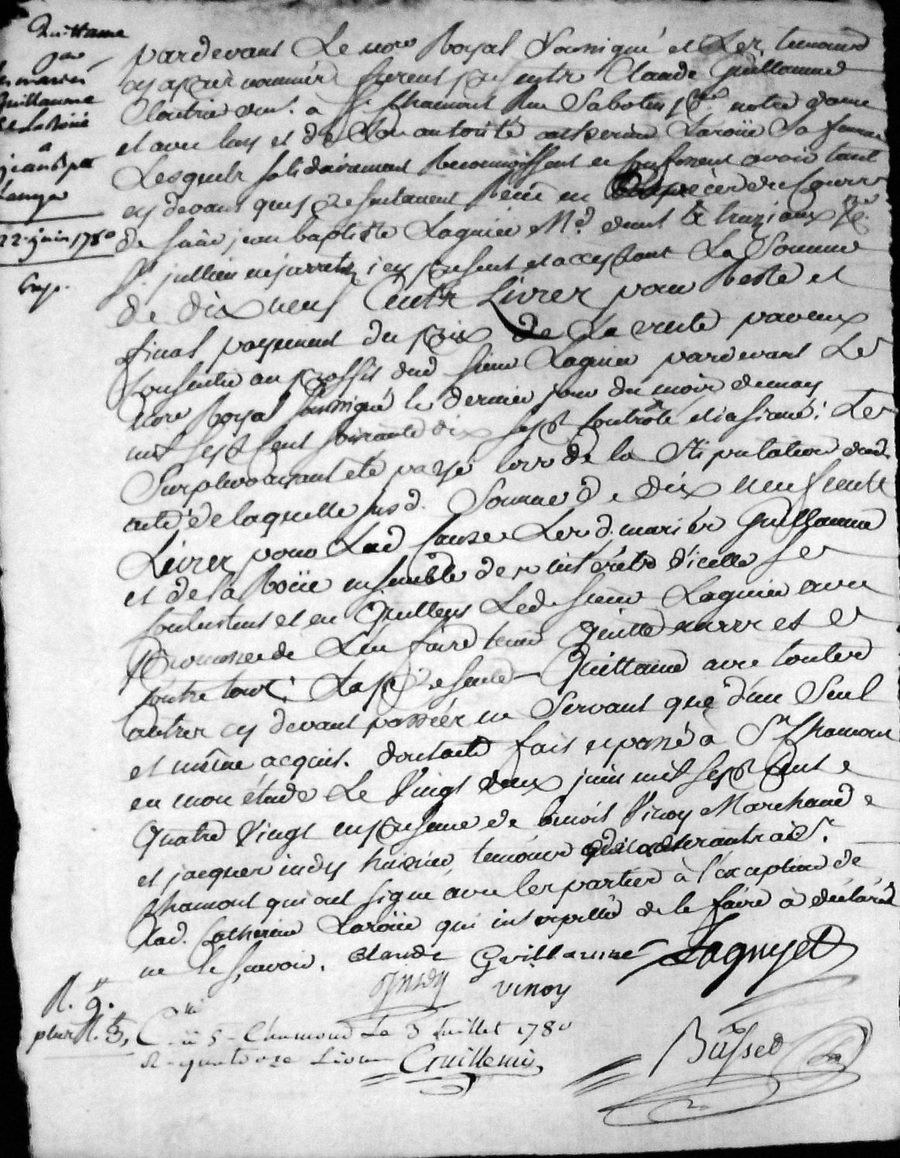 Quittance
par
les mariés
Guillaume
et La Roüe
a
jean bpte
Lanyer
22. juin 1780
Exp.
Pardevant Le nore Royal Soussigné et Les temoins
cy apres nommés furent presents Claude Guillaume
demt. à St. Chamont Rue Sabotin psse. notre dame
et avec luy et de Son autorité catherine Laroüe Sa femme
Lesquels solidairement Reconnoissent et confessent avoir tant
cy devant que presentement Reçu en Especes de cours
de Sieur jean baptiste Lagnier Md. demt. à psse.
St. jullien en jarrets, icy present et acceptant La Somme
de dix neuf Cents Livres pour Reste et
final payement du prix de La vente par eux
consentie au proffit dud. sieur Lagnier pardevant Le
nore Royal soussigné le dernier jour du mois de may
mil sept cent soixante dix sept controlé et insinué; Le
Surplus ayant été payé lors de la Stipulation dud.
acte de laquelle susd. Somme de dix neuf cents
Livres pour Lad. Cause Lesd. mariés Guillaume
et de la Roüe ensemble des interets d'icelle se
contentent et en Quittent Led. sieur Lagnier avec
Promesse de L'en faire tenir Quitte envers et
contre tous; La presente Quittance avec toutes
autres cy devant passées ne Servant que d'un Seul
et même acquit. dont acte fait et passé à St. Chamont
en mon étude Le Vingt deux juin mil sept cent
Quatre Vingt en presence de benoit Vinoy Marchand
et jacques indy huissier, temoins St.
Chamont qui ont signé avec les parties à l'exception de
lad. Catherine Laroüe qui interpellée de le faire à déclaré
ne le sçavoir. Claude Guillaume Lagnyer
Indy Vinoy
R. 9.
plus R. 5,
C. à S-Chamond Le 3 Juillet 1780
R. quatorze Livres Guillemin
Busset